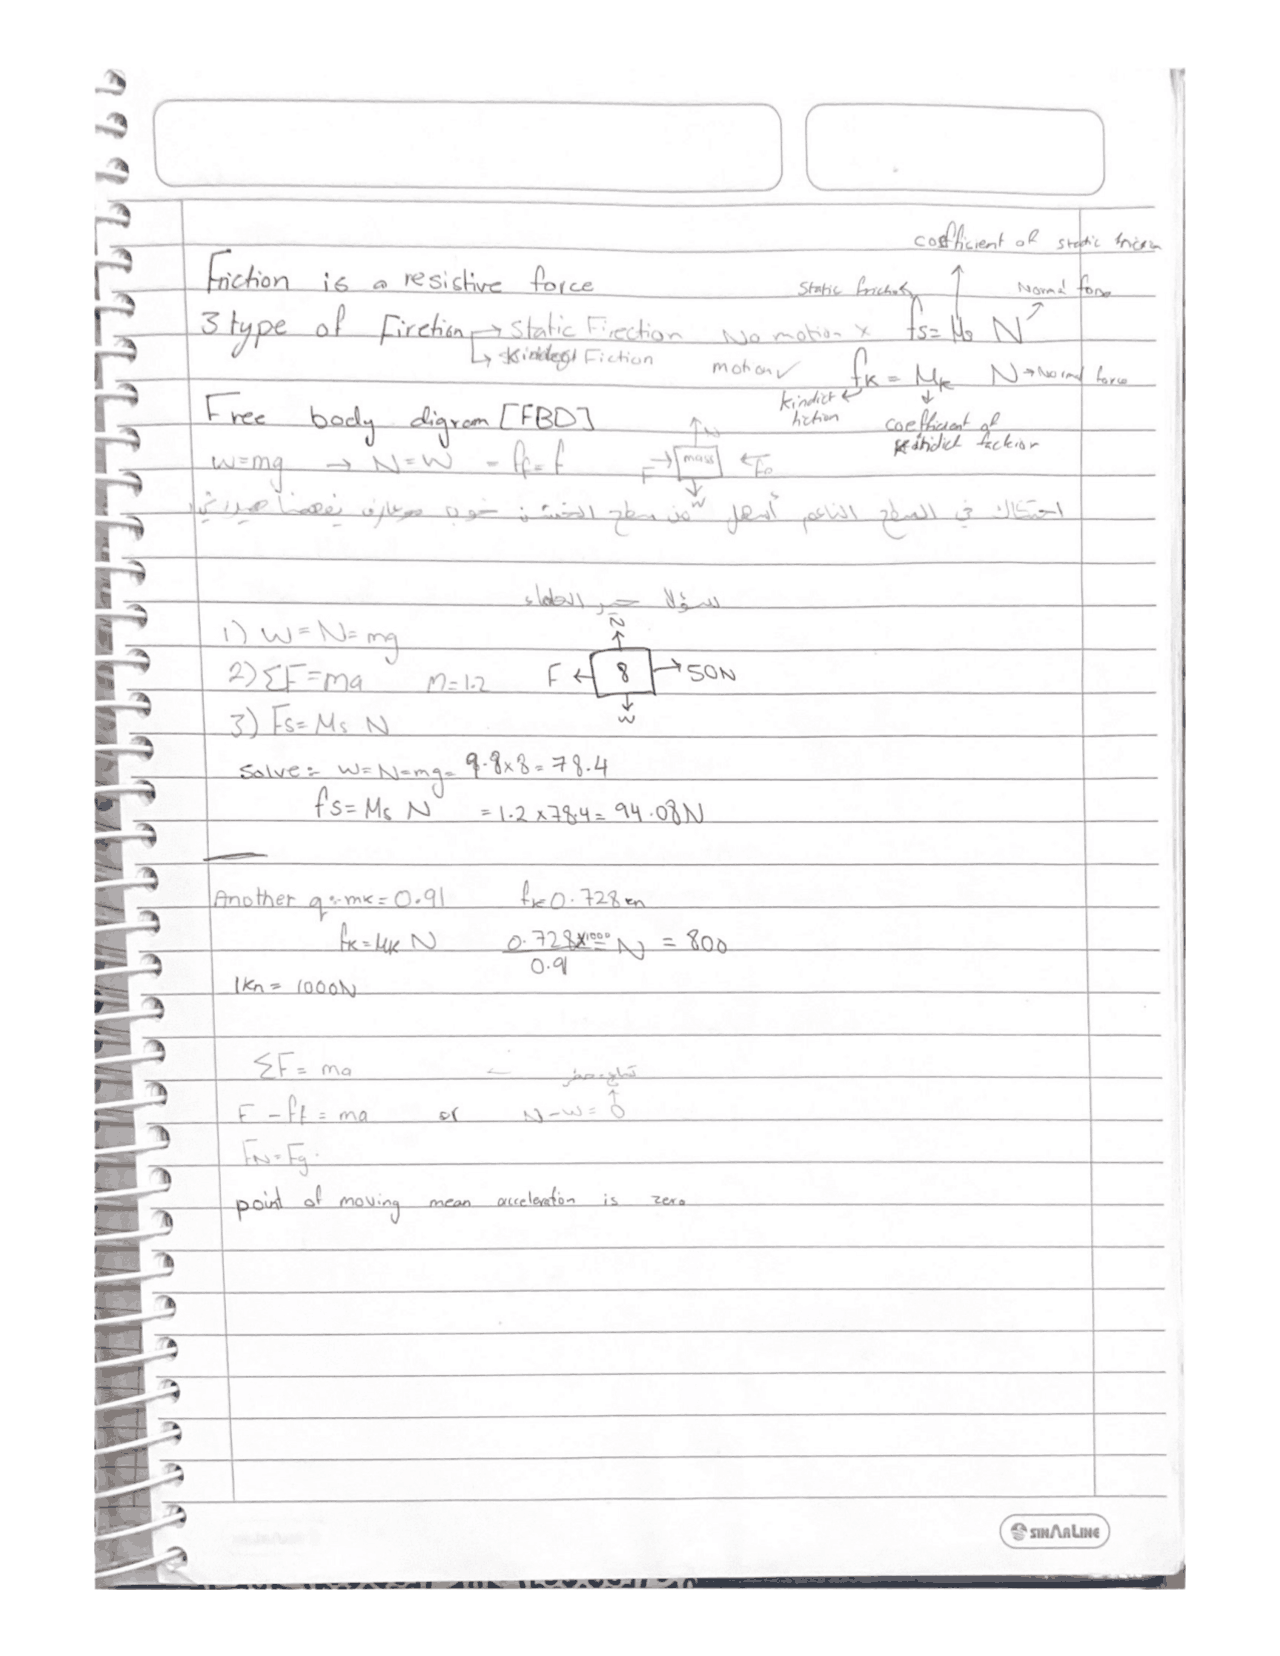 coefficient of static friction
Friction is a resistive force
Static friction Normal force
3 type of Firction → Static Firection No motion × fs = Ms N
↳ Kindect Fiction motion ✓ fK = MK N → Normal force
kindict fiction
coefficient of kindict fackion
Free body digram [FBD]
w=mg → N=W - ff= f
N
F → mass ←
W
احتكاك في السطح الناعم أسهل من سطح الخشن
سؤال
1) W = N = mg
N
2) ΣF = ma M=1.2 F ← 8 → 50N
W
3) Fs = Ms N
Solve:- W=N=mg= 9.8×8 = 78.4
fs= Ms N = 1.2 ×78.4= 94.08N
Another q:- mK = 0.91 fK 0.728 kn
fK= MK N 0.728×1000 N = 800
0.91
1Kn = 1000N
ΣF = ma ←
F - ff = ma or N-W= 0
FN = Fg.
point of moving mean acceleration is zero
SINARLINE